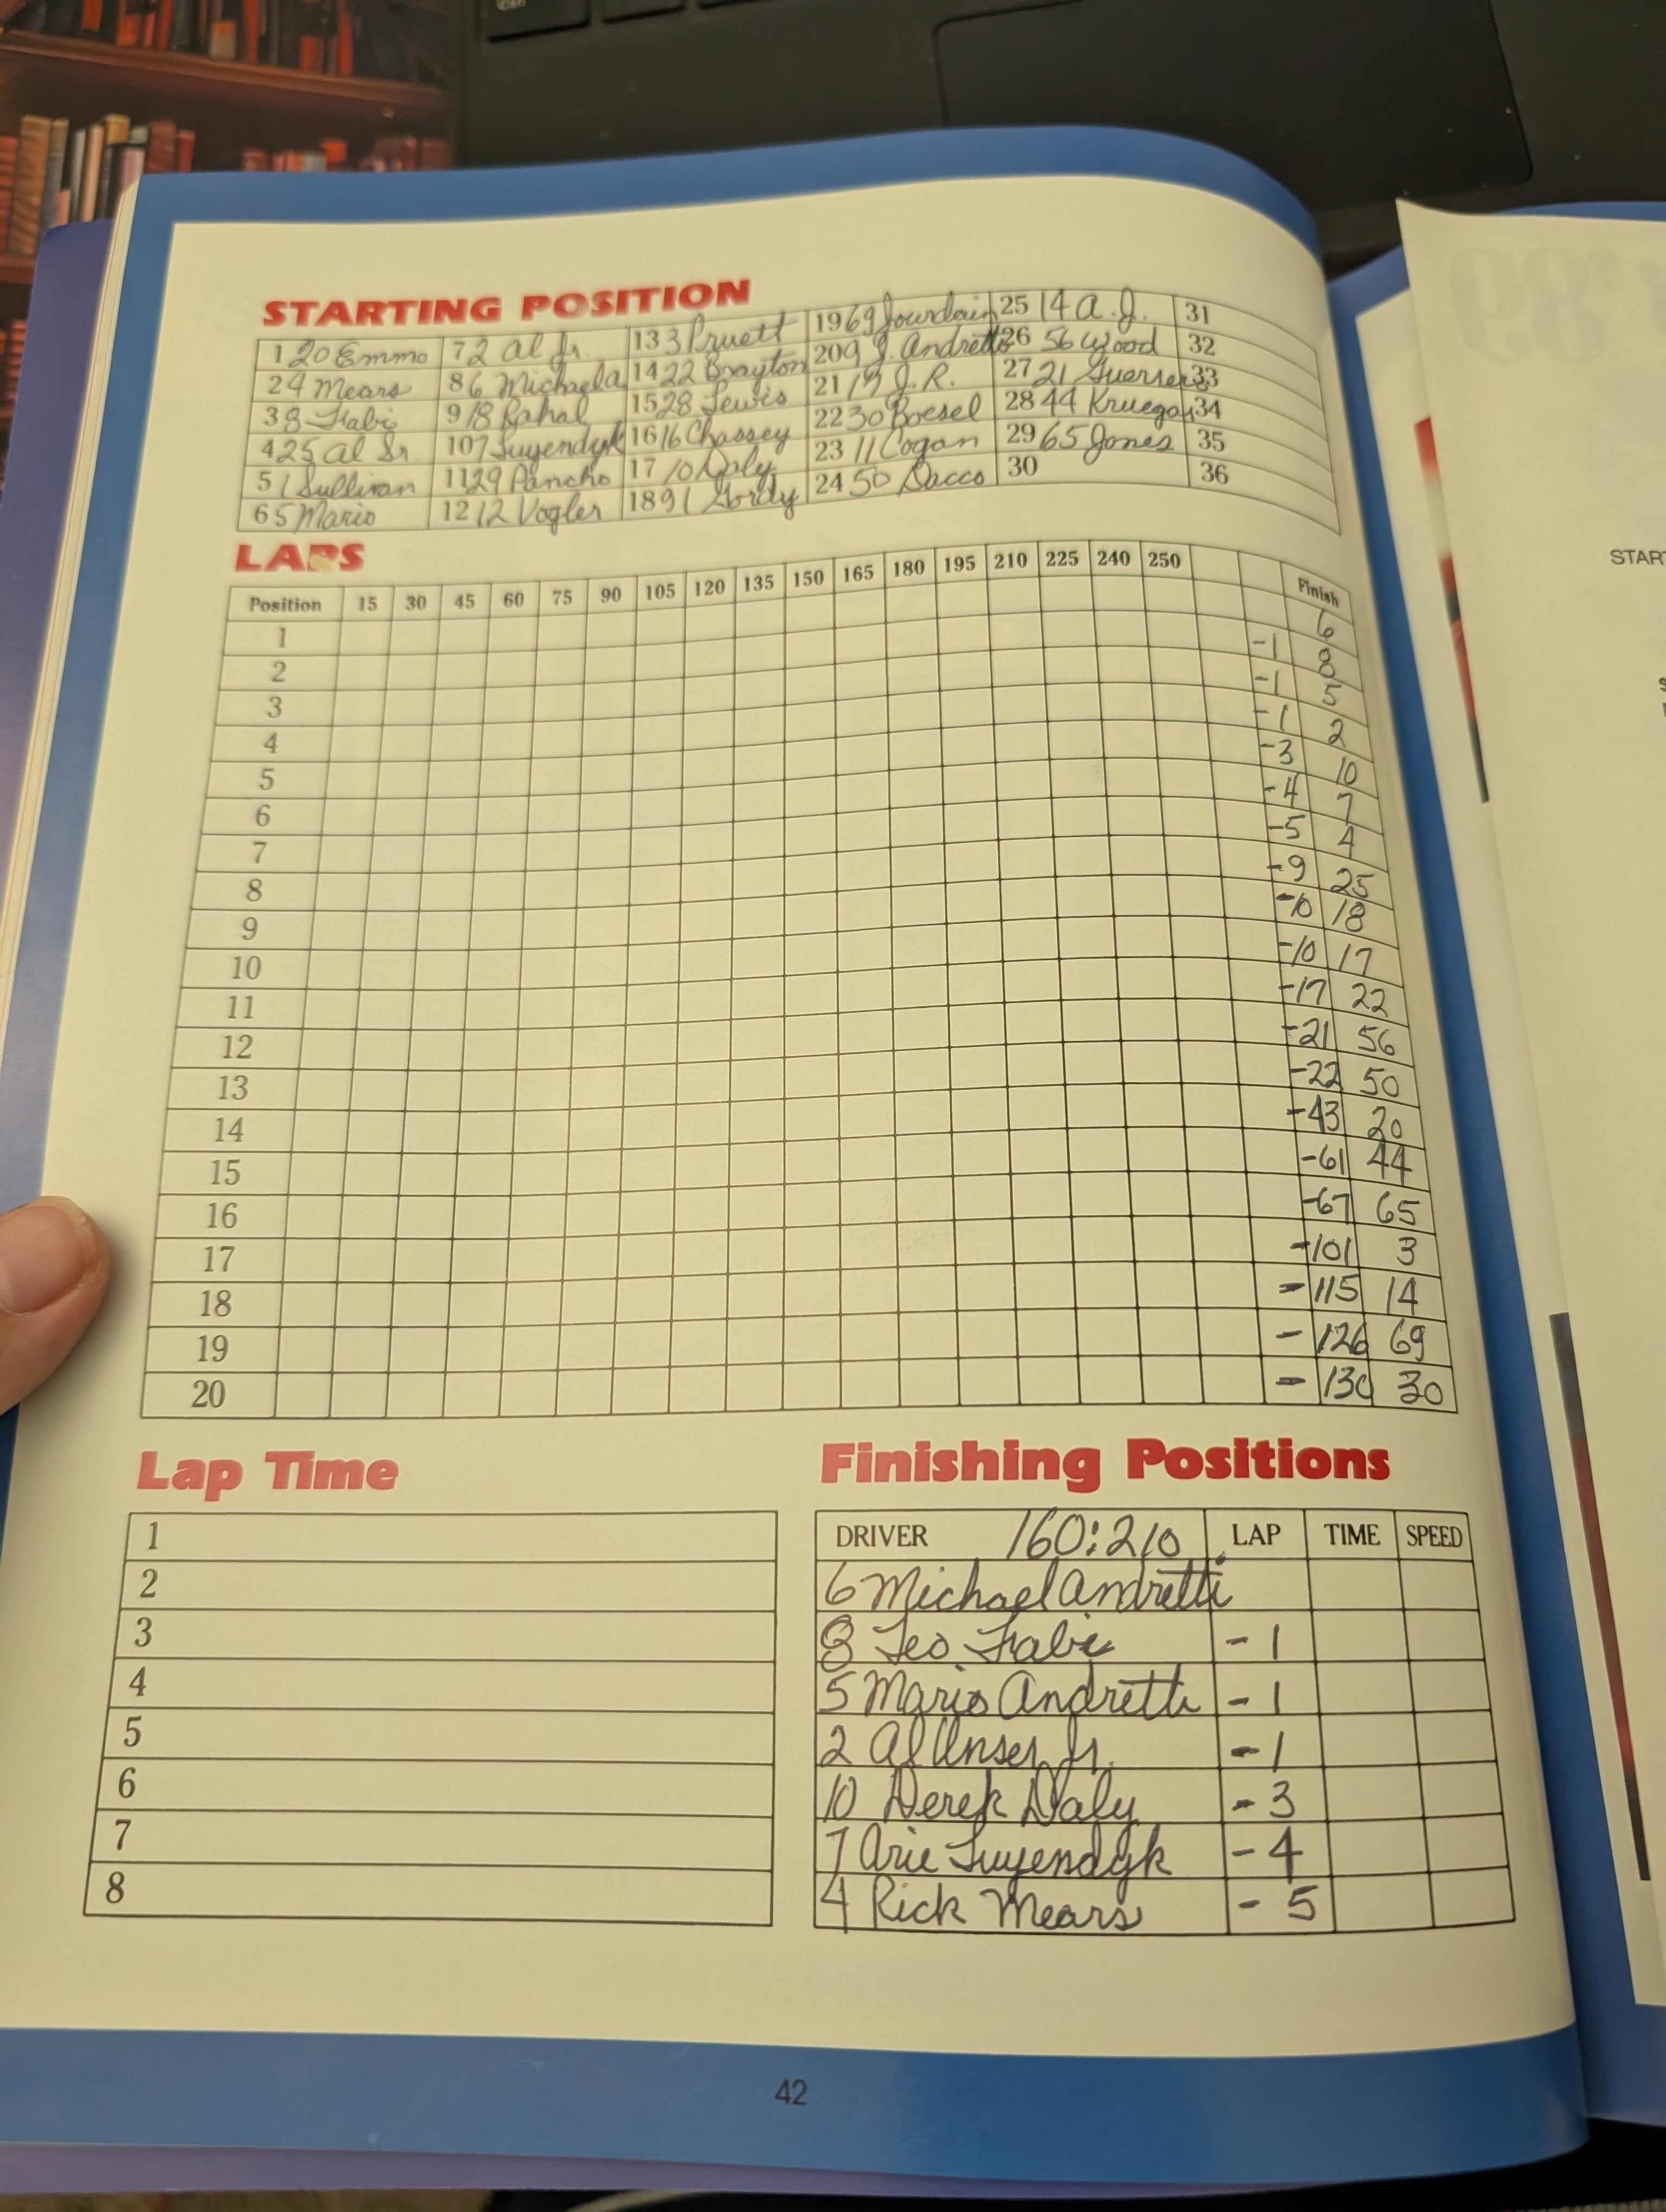 STARTING POSITION
1 20 Emmo 7 2 Al Jr. 13 3 Pruett 19 69 Jourdain 25 14 A.J. 31
2 4 Mears 8 6 Michael A 14 22 Brayton 20 9 J. Andretti 26 56 Wood 32
3 8 Fabi 9 18 Rahal 15 28 Lewis 21 19 J.R. 27 21 Guerrero 33
4 25 Al Sr 10 7 Luyendyk 16 16 Chassey 22 30 Boesel 28 44 Kruegar 34
5 1 Sullivan 11 29 Pancho 17 10 Daly 23 11 Cogan 29 65 Jones 35
6 5 Mario 12 12 Vogler 18 91 Gordy 24 50 Dacco 30 36
LAPS
Position 15 30 45 60 75 90 105 120 135 150 165 180 195 210 225 240 250 Finish
1 6
2 -1 8
3 -1 5
4 -1 2
5 -3 10
6 -4 7
7 -5 4
8 -9 25
9 -10 18
10 -10 17
11 -17 22
12 -21 56
13 -22 50
14 -43 20
15 -61 44
16 -67 65
17 -101 3
18 -115 14
19 -126 69
20 -130 30
Lap Time
1
2
3
4
5
6
7
8
Finishing Positions
DRIVER 160:210 LAP TIME SPEED
6 Michael Andretti
8 Teo Fabi -1
5 Mario Andretti -1
2 Al Unser Jr. -1
10 Derek Daly -3
7 Arie Luyendyk -4
4 Rick Mears -5
42
'89
START